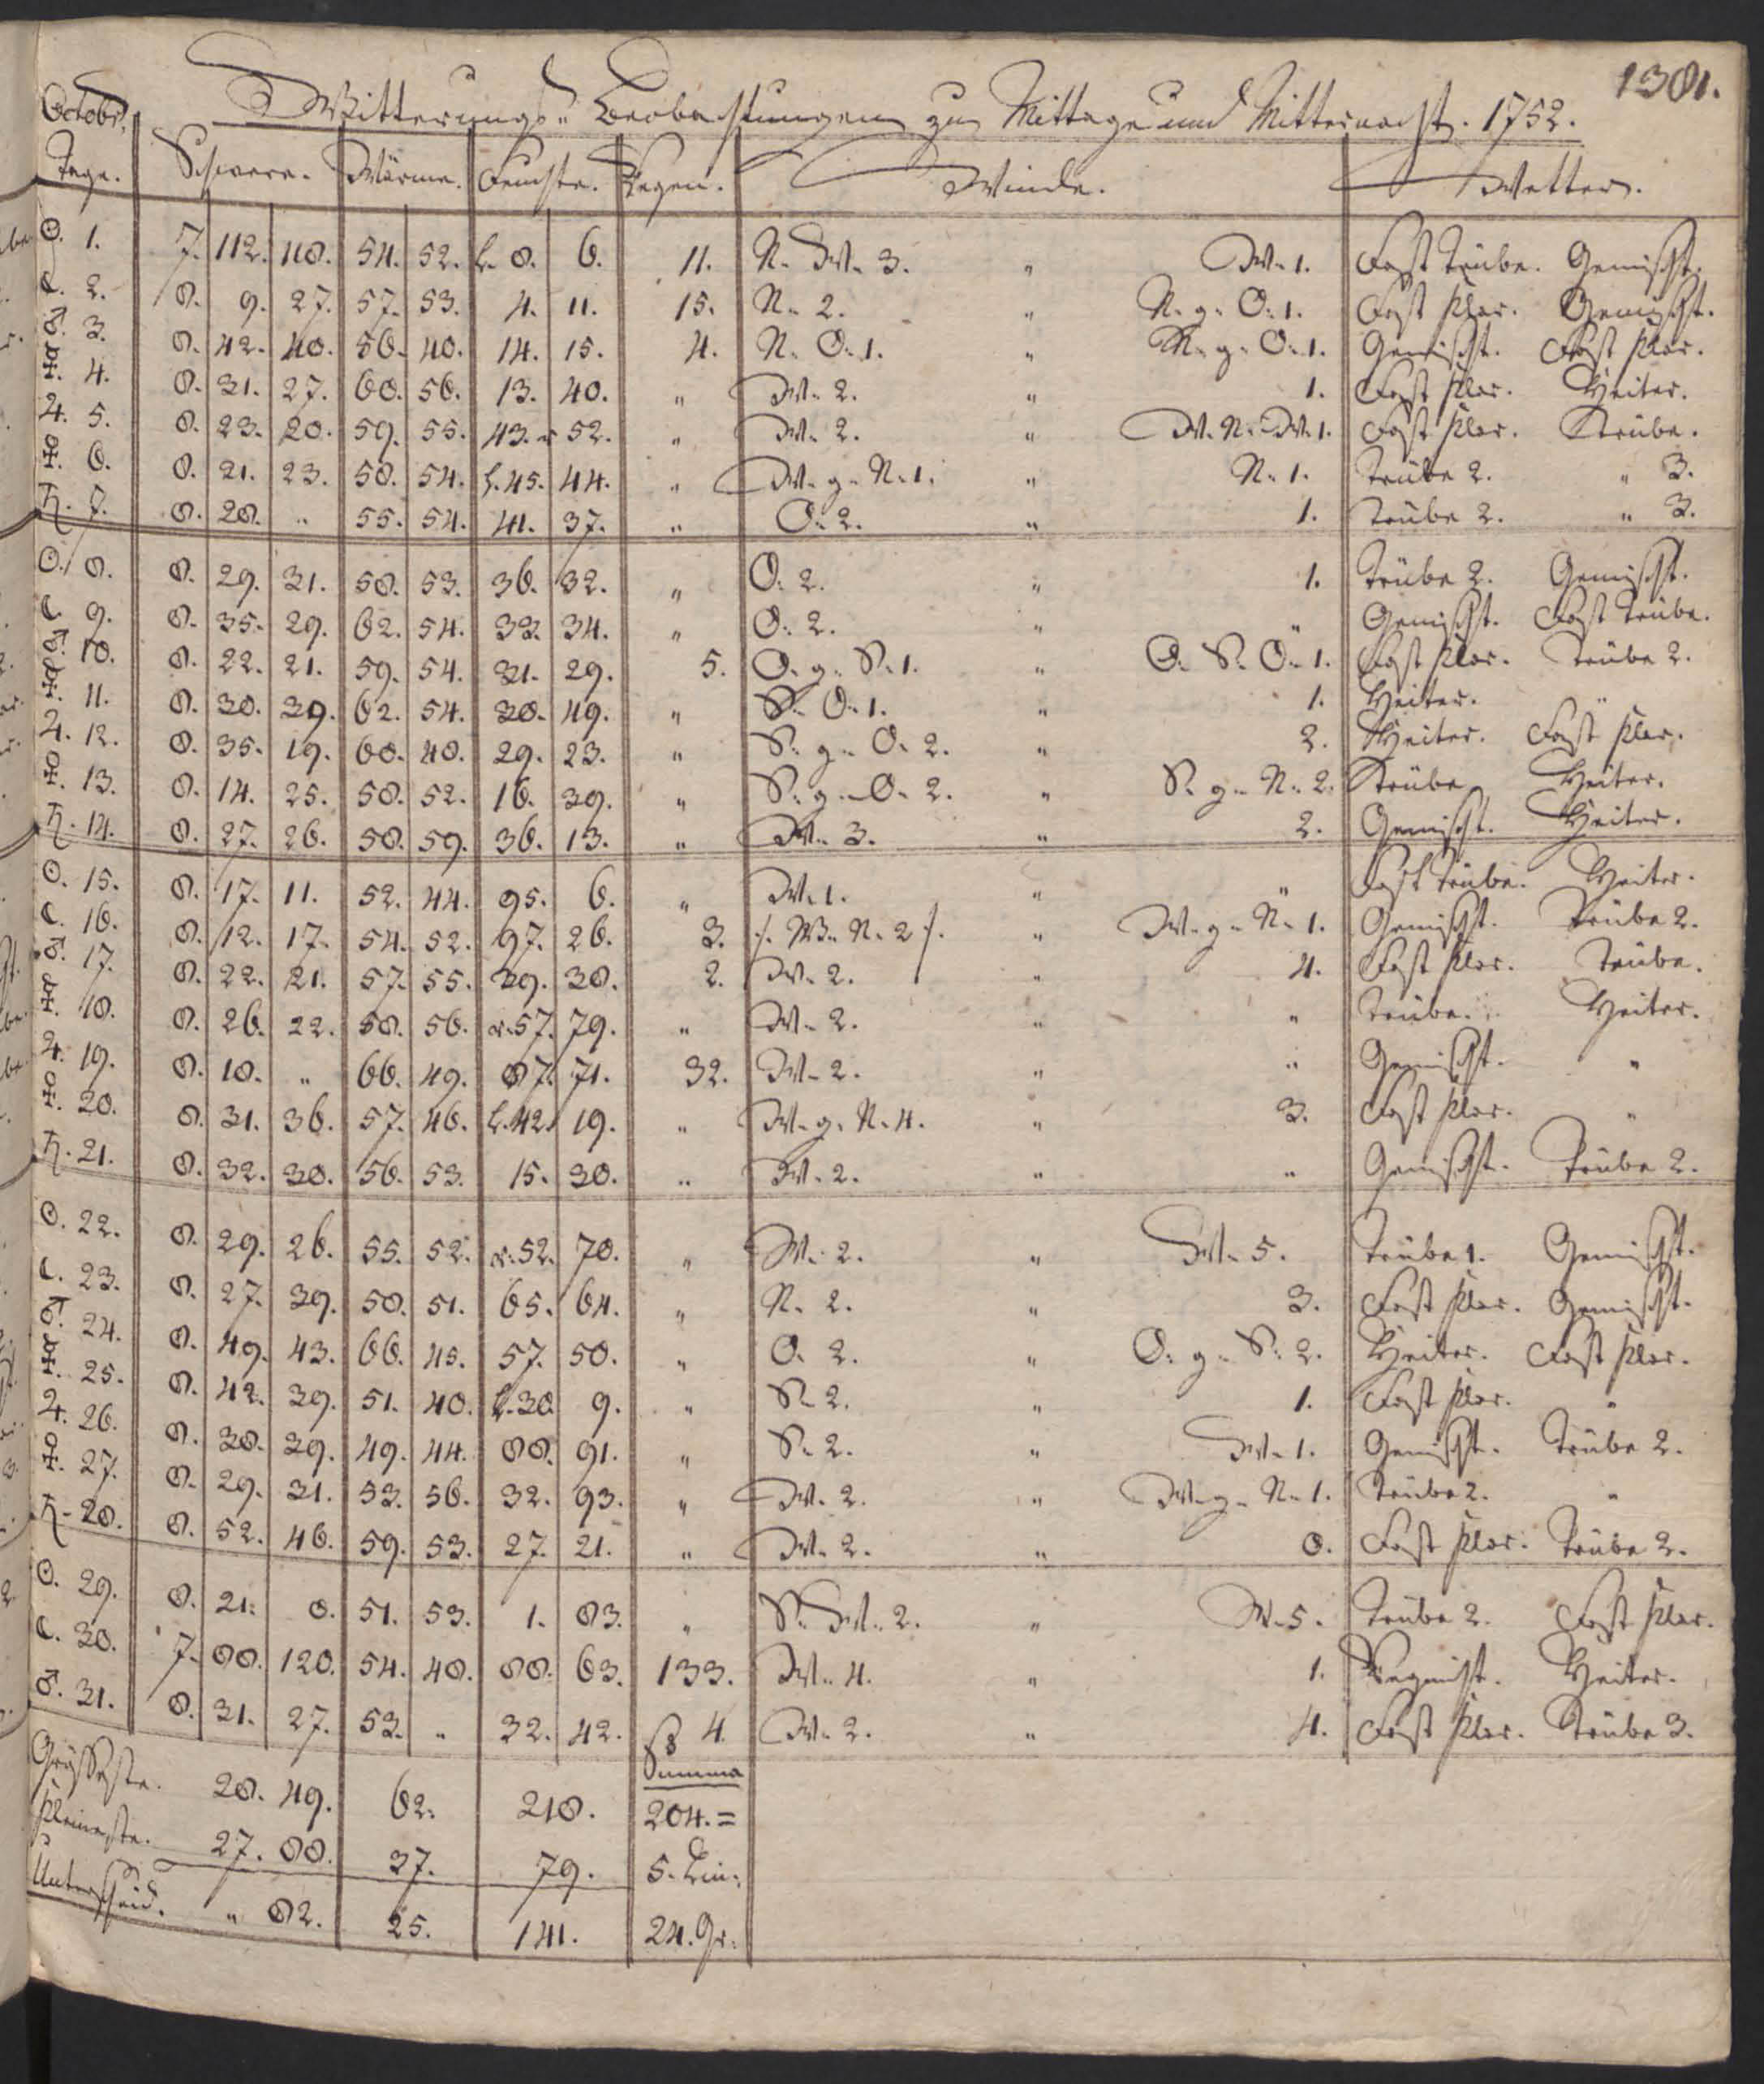 1381.
Octobr. Witterungs= Beobachtungen zu Mittage und Mitternacht. 1752.
Tage. Schwere. Wärme. Feuchte. Regen. Winde. Wetter.
☉. 1. 7. 112. 118. 54. 52. L. 8. 6. 11. N. W. 3. " W. 1. Fast Trübe. Gemischt.
☾. 2. 8. 9. 27. 57. 53. 4. 11. 15. N. 2. " N. g. O. 1. Fast klar. Gemischt.
♂. 3. 8. 42. 40. 56. 48. 14. 15. 4. N. O. 1. " N. g. O. 1. Gemischt. Fast klar.
☿. 4. 8. 31. 27. 60. 56. 13. 40. " W. 2. " 1. Fast klar. Heiter.
♃. 5. 8. 23. 20. 59. 55. 43. r 52. " W. 2. " W. N. W. 1. Fast klar. Trübe.
♀. 6. 8. 21. 23. 58. 54. L. 45. 44. " W. g. N. 1. " N. 1. Trübe 2. " 3.
♄. 7. 8. 28. " 55. 54. 41. 37. " O. 2. " 1. Trübe 2. " 3.
☉. 8. 8. 29. 31. 58. 53. 36. 32. " O. 2. " 1. Trübe 2. Gemischt.
☾. 9. 8. 35. 29. 62. 54. 33. 34. " O. 2. " " Gemischt. Fast Trübe.
♂. 10. 8. 22. 21. 59. 54. 31. 29. 5. O. g. S. 1. " O. S. O. 1. Fast klar. Trübe 2.
☿. 11. 8. 30. 39. 62. 54. 38. 49. " S. O. 1. " 1. Heiter. "
♃. 12. 8. 35. 19. 60. 48. 29. 23. " S. g. O. 2. " 2. Heiter. Fast klar.
♀. 13. 8. 14. 25. 58. 52. 16. 39. " S. g. O. 2. " S. g. N. 2. Trübe Heiter.
♄. 14. 8. 27. 26. 58. 59. 36. 13. " W. 3. " 2. Gemischt. Heiter.
☉. 15. 8. 17. 11. 52. 44. 95. 6. " W. 1. " " Fast Trübe. Heiter.
☾. 16. 8. 12. 17. 54. 52. 97. 26. 3. /. W. N. 2 /. " W. g. N. 1. Gemischt. Trübe 2.
♂. 17. 8. 22. 21. 57. 55. 39. 38. 2. W. 2. " 4. Fast klar. Trübe.
☿. 18. 8. 26. 22. 58. 56. r. 57. 79. " W. 2. " " Trübe. Heiter.
♃. 19. 8. 18. " 66. 49. 87. 71. 32. W. 2. " " Gemischt. "
♀. 20. 8. 31. 36. 57. 46. L. 42. 19. " W. g. N. 4. " 3. Fast klar. "
♄. 21. 8. 32. 30. 56. 53. 15. 30. " W. 2. " " Gemischt. Trübe 2.
☉. 22. 8. 29. 26. 55. 52. r. 52. 70. " W. 2. " W. 5. Trübe 1. Gemischt.
☾. 23. 8. 27. 39. 58. 51. 65. 64. " N. 2. " 3. Fast klar. Gemischt.
♂. 24. 8. 49. 43. 66. 45. 57. 50. " O. 2. " O. g. S. 2. Heiter. Fast klar.
☿. 25. 8. 42. 39. 51. 40. L. 30. 9. " S. 2. " 1. Fast klar. "
♃. 26. 8. 38. 39. 49. 44. 88. 91. " S. 2. " W. 1. Gemischt. Trübe 2.
♀. 27. 8. 29. 31. 53. 56. 32. 93. " W. 2. " W. g. N. 1. Trübe 2. "
♄. 28. 8. 52. 46. 59. 53. 27. 21. " W. 2. " 0. Fast klar. Trübe 2.
☉. 29. 8. 21. 8. 51. 53. 1. 83. " S. W. 2. " W. 5. Trübe 2. Fast klar.
☾. 30. 7. 88. 120. 54. 48. 88. 63. 133. W. 4. " 1. Regnicht. Heiter.
♂. 31. 8. 31. 27. 53. " 32. 42. 4. W. 2. " 4. Fast klar. Trübe 3.
Summa
Grösseste. 28. 49. 62. 218. 204. =
Kleineste. 27. 88. 37. 79. 5. Lin:
Unterscheid. " 82. 25. 141. 24. Gr: